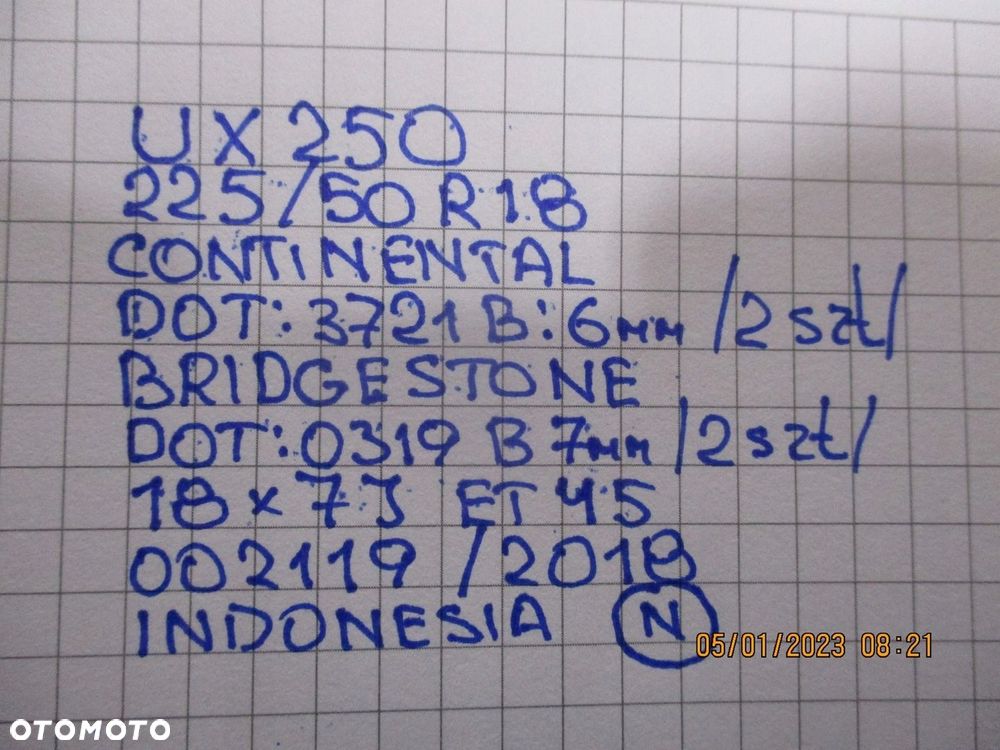 UX 250
225/50 R 18
CONTINENTAL
DOT: 3721 B: 6mm /2 szt/
BRIDGESTONE
DOT: 0319 B 7mm /2 szt/
18 x 7J ET 45
002119 /2018
INDONESIA N
05/01/2023 08:21
OTOMOTO